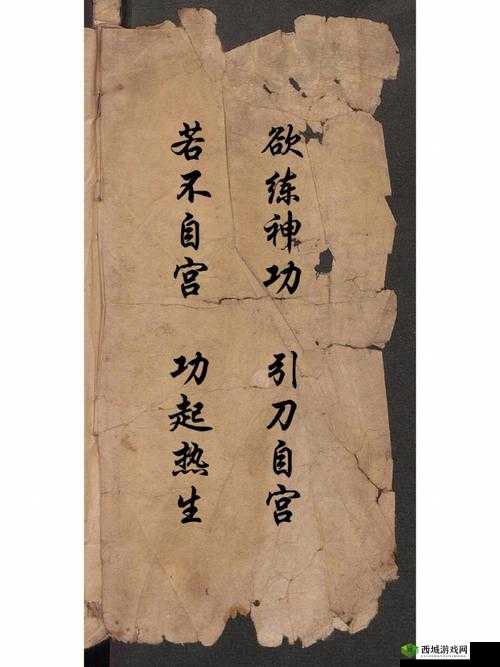 欲练神功 引刀自宫
若不自宫 功起热生
西城游戏网